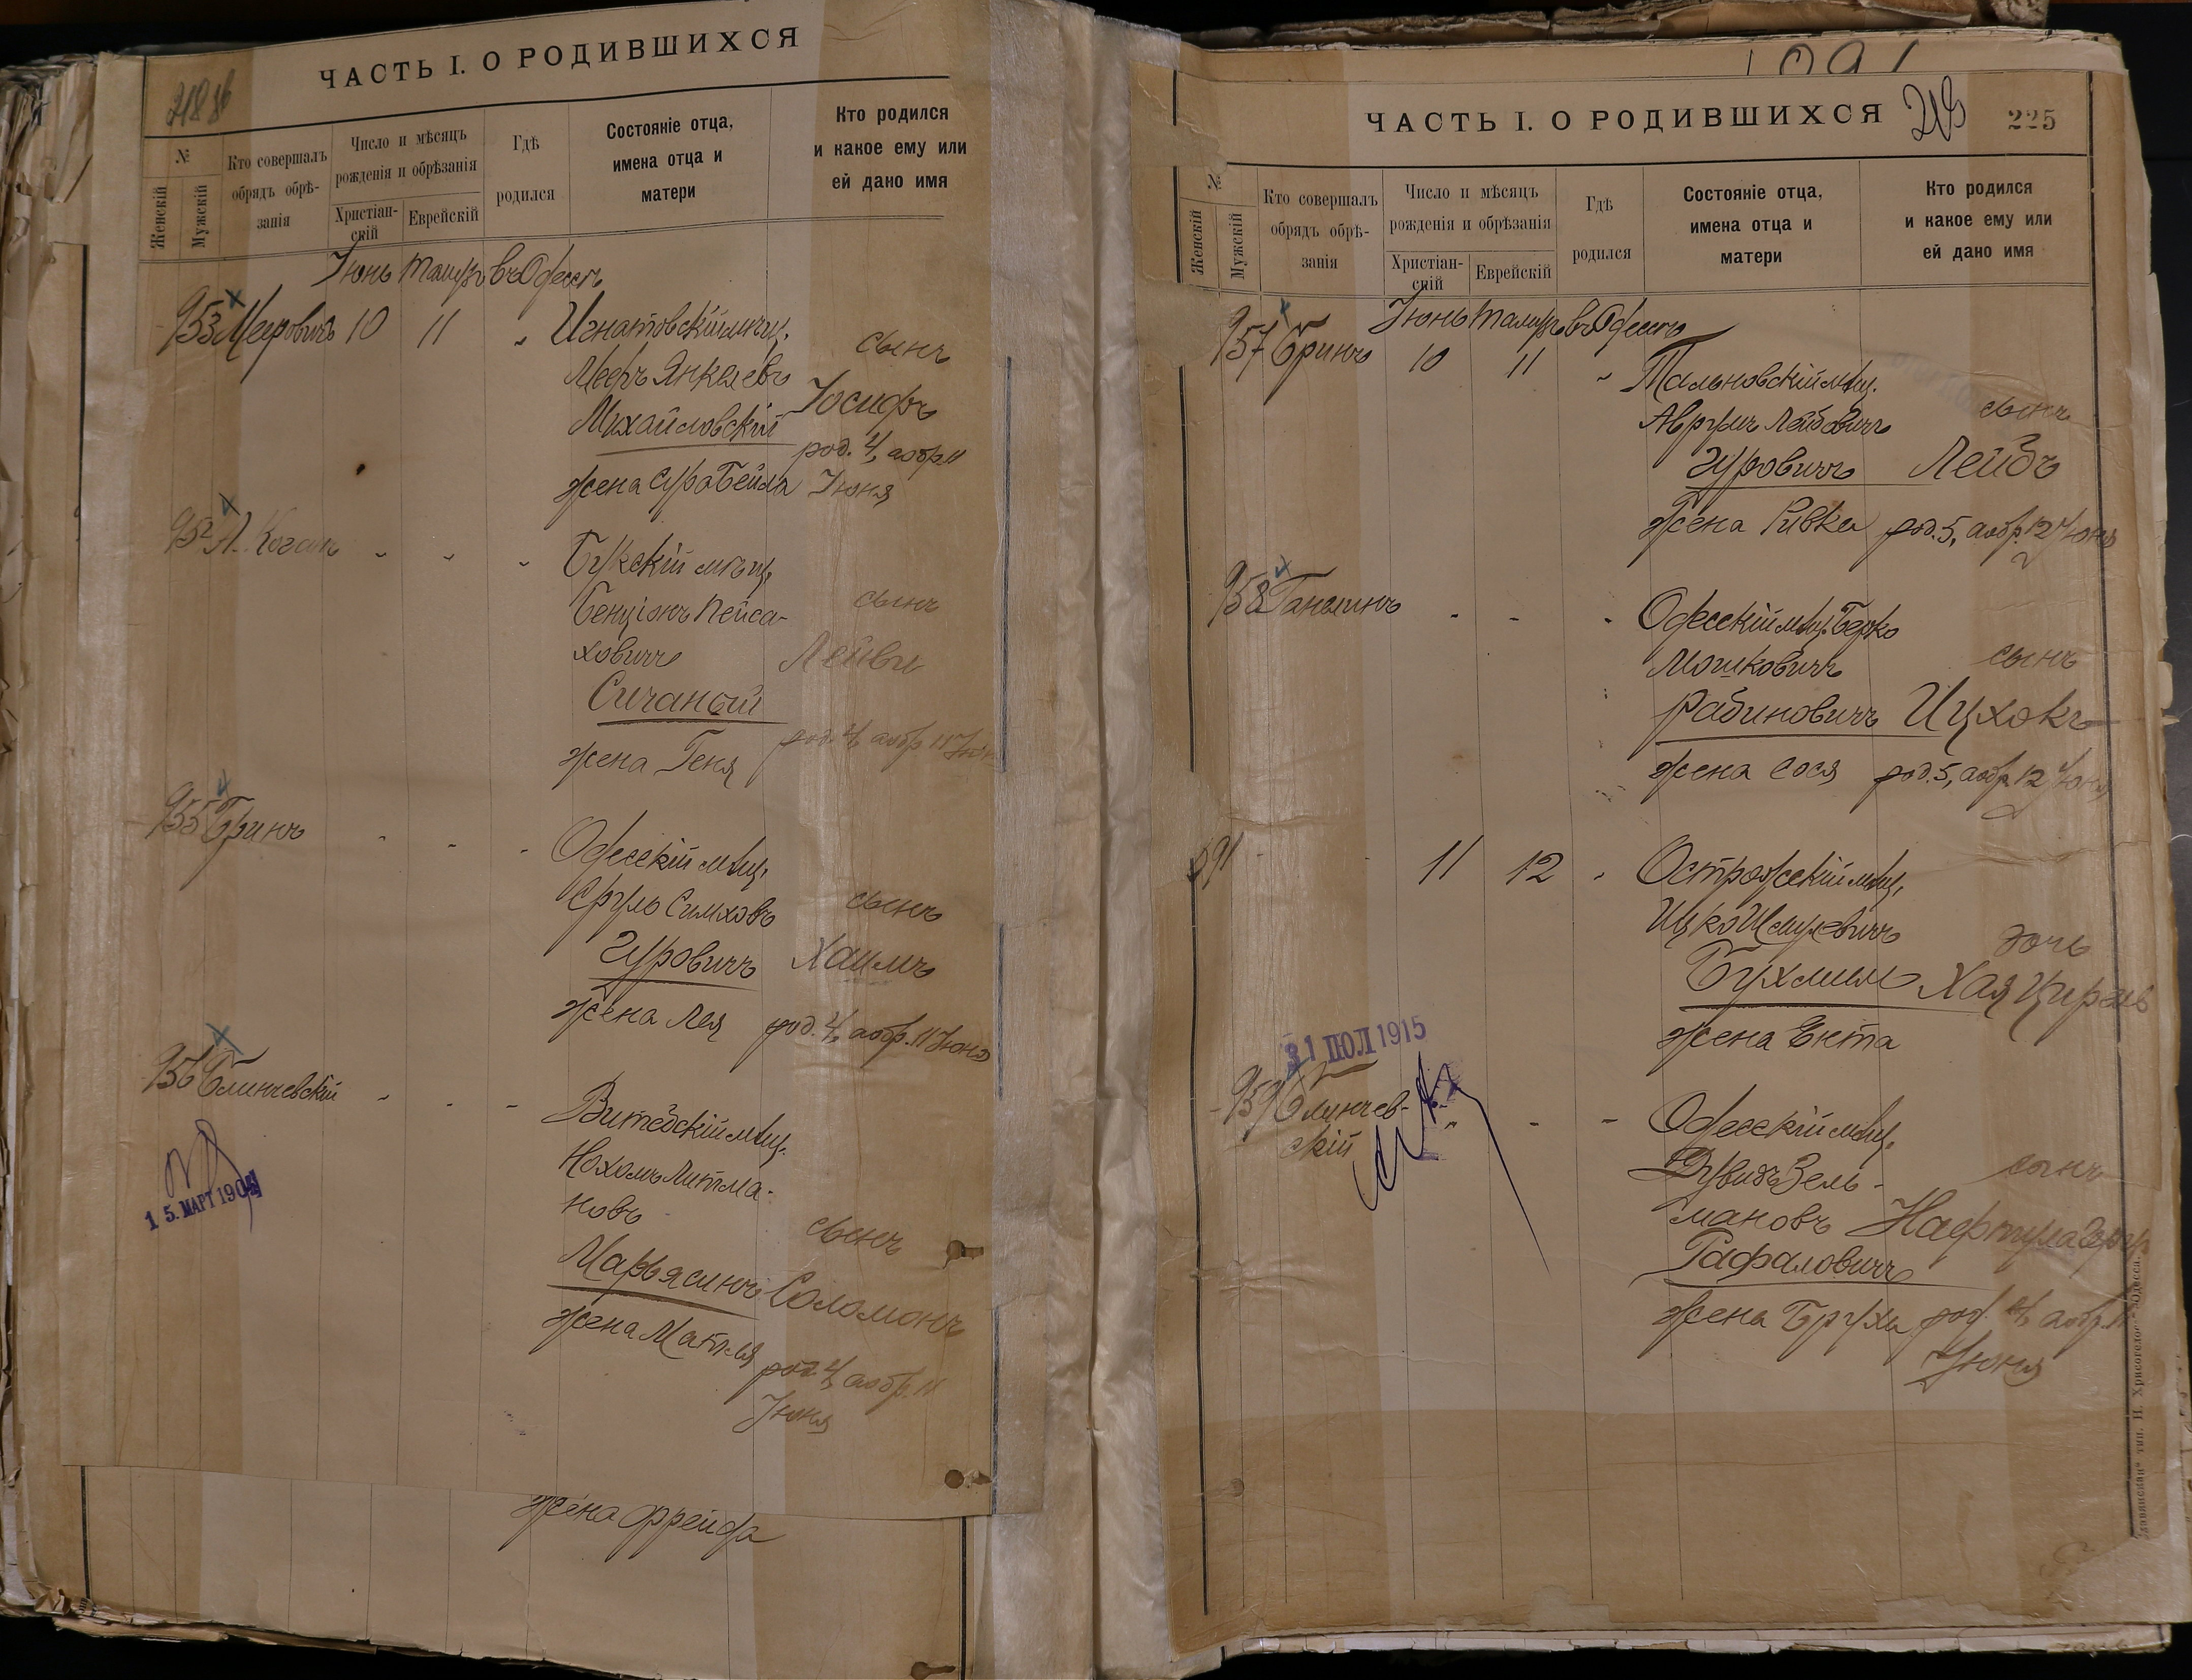 ЧАСТЬ I. О РОДИВШИХСЯ
№
Женскій
Мужскій
Кто совершалъ
обрядъ обрѣ-
занія
Число и мѣсяцъ
рожденія и обрѣзанія
Христіан-
скій
Еврейскій
Гдѣ
родился
Состояніе отца,
имена отца и
матери
Кто родился
и какое ему или
ей дано имя
Іюнь Тамузъ въ Одессѣ
953 Мееровичъ 10 11 " Игнатовскій мѣщ.
Мееръ Янкелевъ
Михайловскій
жена Сура Бейла
сынъ
Іосифъ
род. 4, а обр. 11
Іюня
А. Коганъ " " " Букскій мѣщ.
Бенціонъ Пейса-
ховичъ
Сичаный
жена Геня
сынъ
Лейви
род. 4, а обр. 11 Іюн
955 Бринъ " " " Одесскій мѣщ.
Сруль Симховъ
Гуровичъ
жена Лея
сынъ
Хаимъ
род. 4, а обр. 11 Іюня
956 Блинчевскій " " " Витебскій мѣщ.
Нохомъ Литма-
новъ
Марьясинъ
жена Матля
сынъ
Соломонъ
род. 4, а обр. 11
Іюня
15. МАРТ 190
жена Фрейда
ЧАСТЬ I. О РОДИВШИХСЯ
225
№
Женскій
Мужскій
Кто совершалъ
обрядъ обрѣ-
занія
Число и мѣсяцъ
рожденія и обрѣзанія
Христіан-
скій
Еврейскій
Гдѣ
родился
Состояніе отца,
имена отца и
матери
Кто родился
и какое ему или
ей дано имя
Іюнь Тамузъ въ Одессѣ
957 Бринъ 10 11 " Тальновскій мѣщ.
Аврумъ Лейбовичъ
Гуровичъ
жена Ривка
сынъ
Лейбъ
род. 5, а обр. 12 Іюня
958 " " " Одесскій мѣщ. Берко
Мошковичъ
Рабиновичъ
жена Сося
сынъ
Ицхокъ
род. 5, а обр. 12 Іюня
591 " " 11 12 " Острожскій мѣщ.
Ицко Шмулевичъ
жена Ента
дочь
Хая
31 ІЮЛ 1915
959 Блинчев-
скій
" " " Одесскій мѣщ.
Дувидъ Зель-
мановъ
Рафаловичъ
жена Бруха
сынъ
Нафтула
род. 4, а обр. 11
Іюня